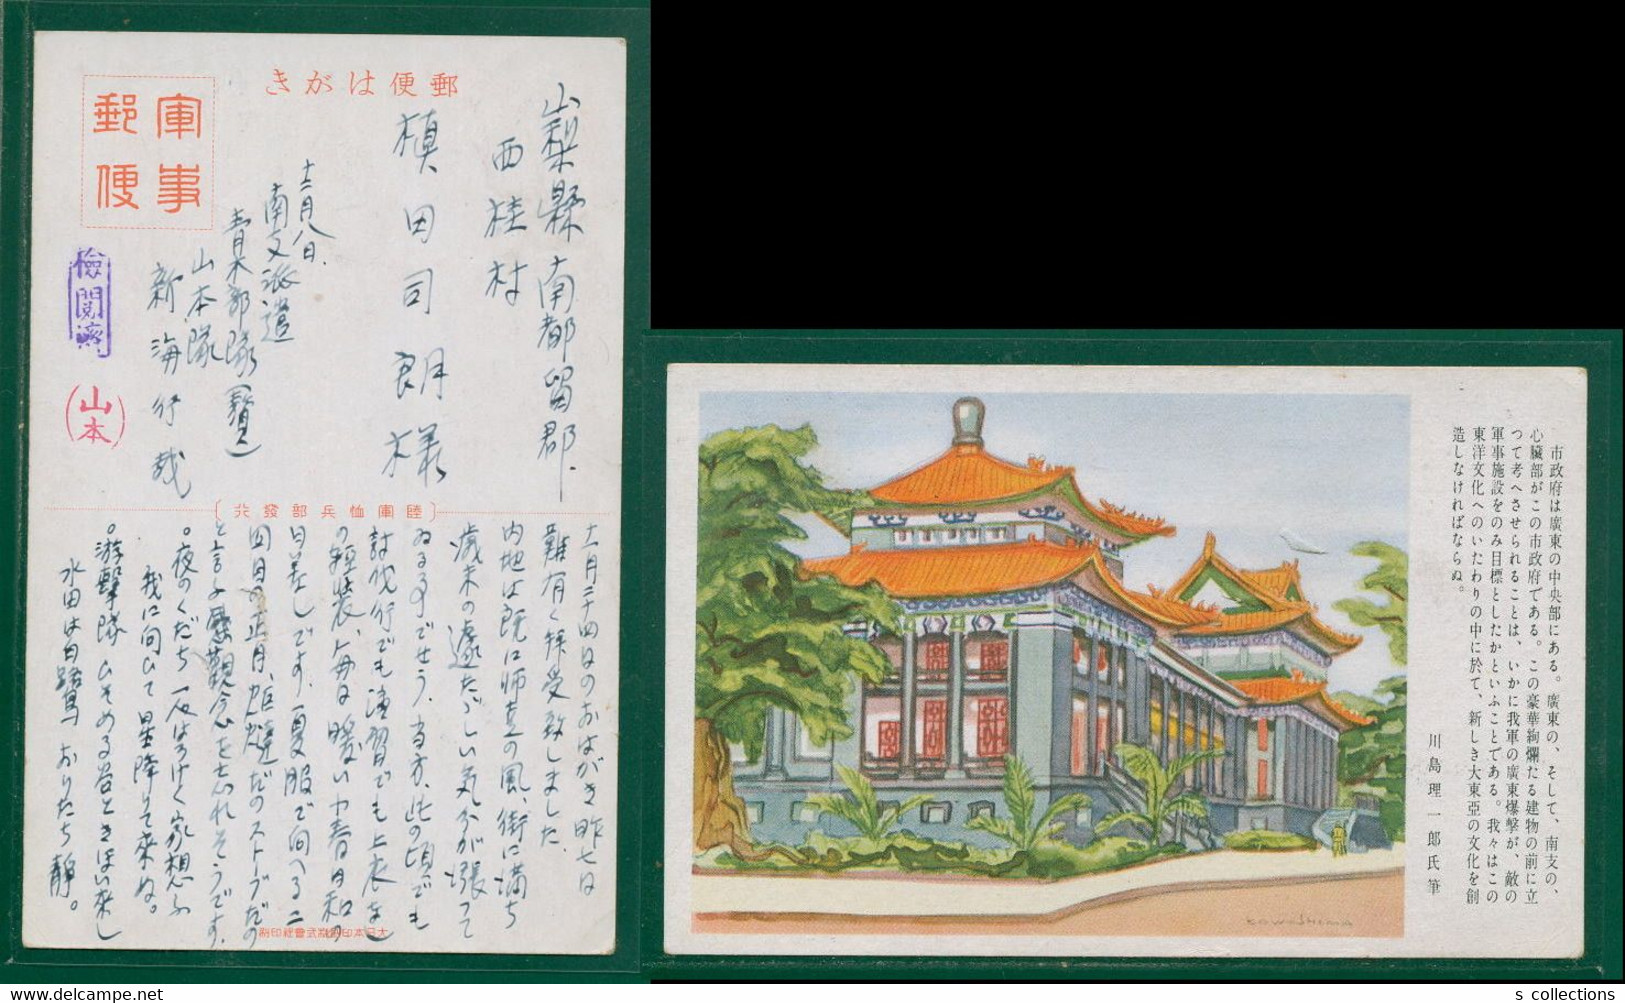 郵便はがき
軍事
郵便
検閲済
山本
山梨縣南都留郡
西桂村
槙田司朗様
十二月八日、
南支派遣
青木部隊
山本隊
新海行哉
〔陸軍恤兵部發行〕
十一月二十四日のおはがき昨七日
難有く拝受致しました。
内地は既に師走の風、街に満ち
歳末の遽たゞしい気分が漲って
ゐる事でせう。当方、此の頃でも
討伐行でも演習でも上衣なし
の軽装、毎日暖い小春日和
日差しです。夏服で向へる二
四日の正月、炬燵だのストーブだの
と言ふ観念を忘れそうです。
夜のくだち
家想ふ
我に向ひて星降りて来ぬ。
游撃隊ひそめる谷ときほい来し
水田は白鷺おりたち靜。
市政府は廣東の中央部にある。廣東の、そして、南支の、
心臓部がこの市政府である。この豪華絢爛たる建物の前に立
つて考へさせられることは、いかに我軍の廣東爆撃が、敵の
軍事施設をのみ目標としたかといふことである。我々はこの
東洋文化へのいたわりの中に於て、新しき大東亞の文化を創
造しなければならぬ。
川島理一郎氏筆
KAWASHIMA
s collections